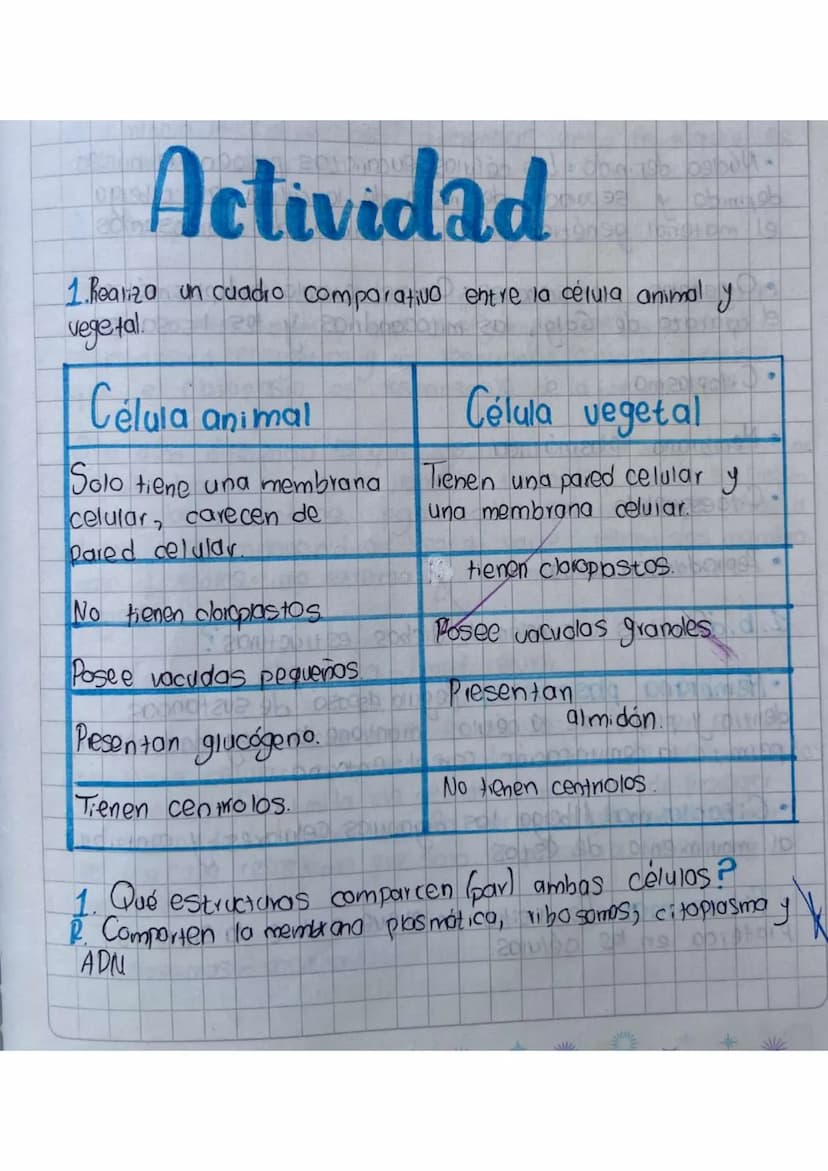 Actividad
1. Realizo un cuadro comparativo entre la célula animal y
vegetal.
Célula animal
Célula vegetal
Solo tiene una membrana
celular, carecen de
pared celular.
Tienen una pared celular y
una membrana celular.
No tienen cloroplastos
tienen cloroplastos.
Posee vacuolas pequeños.
Posee vacuolas grandes.
Pesentan glucógeno.
Presentan
almidón.
Tienen centriolos.
No tienen centriolos.
1. Qué estructuras comparcen (par) ambas células?
R. Comporten la membrana plasmática, ribosomas, citoplasma y
ADN